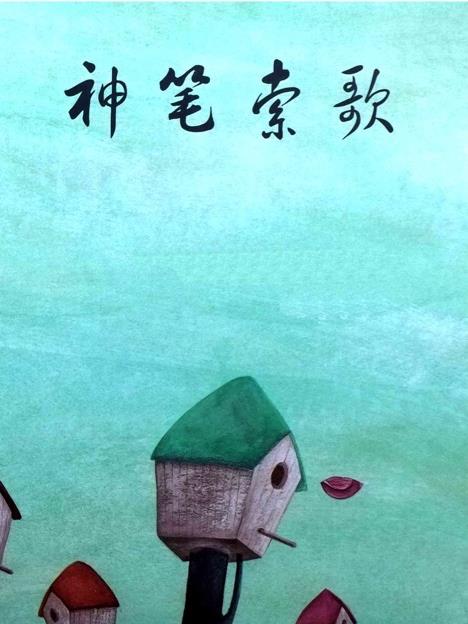 神笔索歌